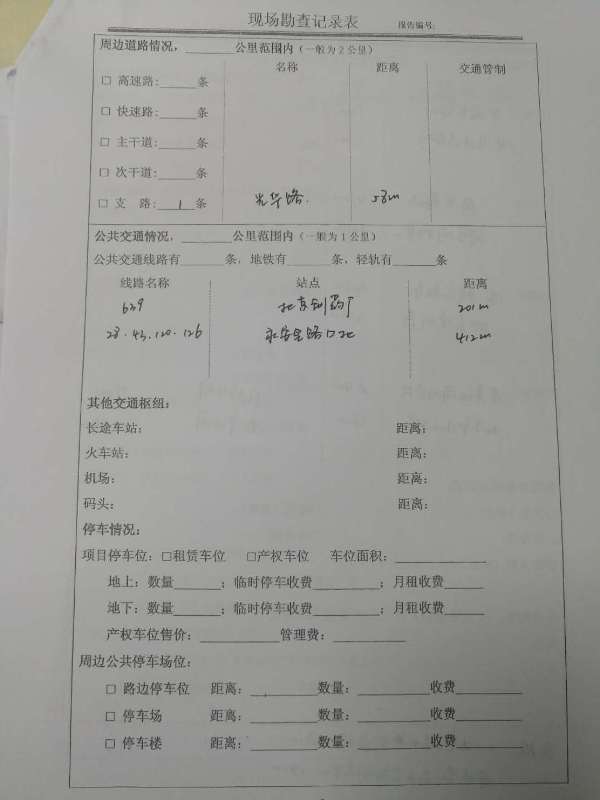 现场勘查记录表 报告编号:
周边道路情况，______公里范围内（一般为2公里）
名称 距离 交通管制
□ 高速路:_____条
□ 快速路:_____条
□ 主干道:_____条
□ 次干道:_____条
□ 支 路:__1__条 光华路 58m
公共交通情况，______公里范围内（一般为1公里）
公共交通线路有_____条，地铁有_____条，轻轨有_____条
线路名称 站点 距离
639 北京制药厂 201m
28·43·120·126 永安里路口北 412m
其他交通枢纽：
长途车站： 距离：
火车站： 距离：
机场： 距离：
码头： 距离：
停车情况：
项目停车位：□租赁车位 □产权车位 车位面积：__________
地上：数量_____；临时停车收费_______；月租收费____
地下：数量_____；临时停车收费_______；月租收费____
产权车位售价：________管理费：________
周边公共停车场位：
□ 路边停车位 距离：_______数量：_______收费_______
□ 停车场 距离：_______数量：_______收费_______
□ 停车楼 距离：_______数量：_______收费_______